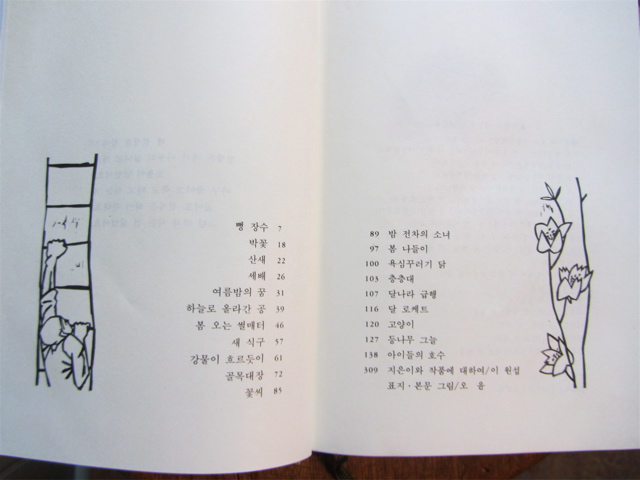 뻥 장수 7
박꽃 18
산새 22
세배 26
여름밤의 꿈 31
하늘로 올라간 공 39
봄 오는 썰매터 46
새 식구 57
강물이 흐르듯이 61
골목대장 72
꽃씨 85
89 밤 전차의 소녀
97 봄 나들이
100 욕심꾸러기 닭
103 층층대
107 달나라 급행
116 달 로케트
120 고양이
127 등나무 그늘
138 아이들의 호수
309 지은이와 작품에 대하여/이 원섭
표지·본문 그림/오 윤